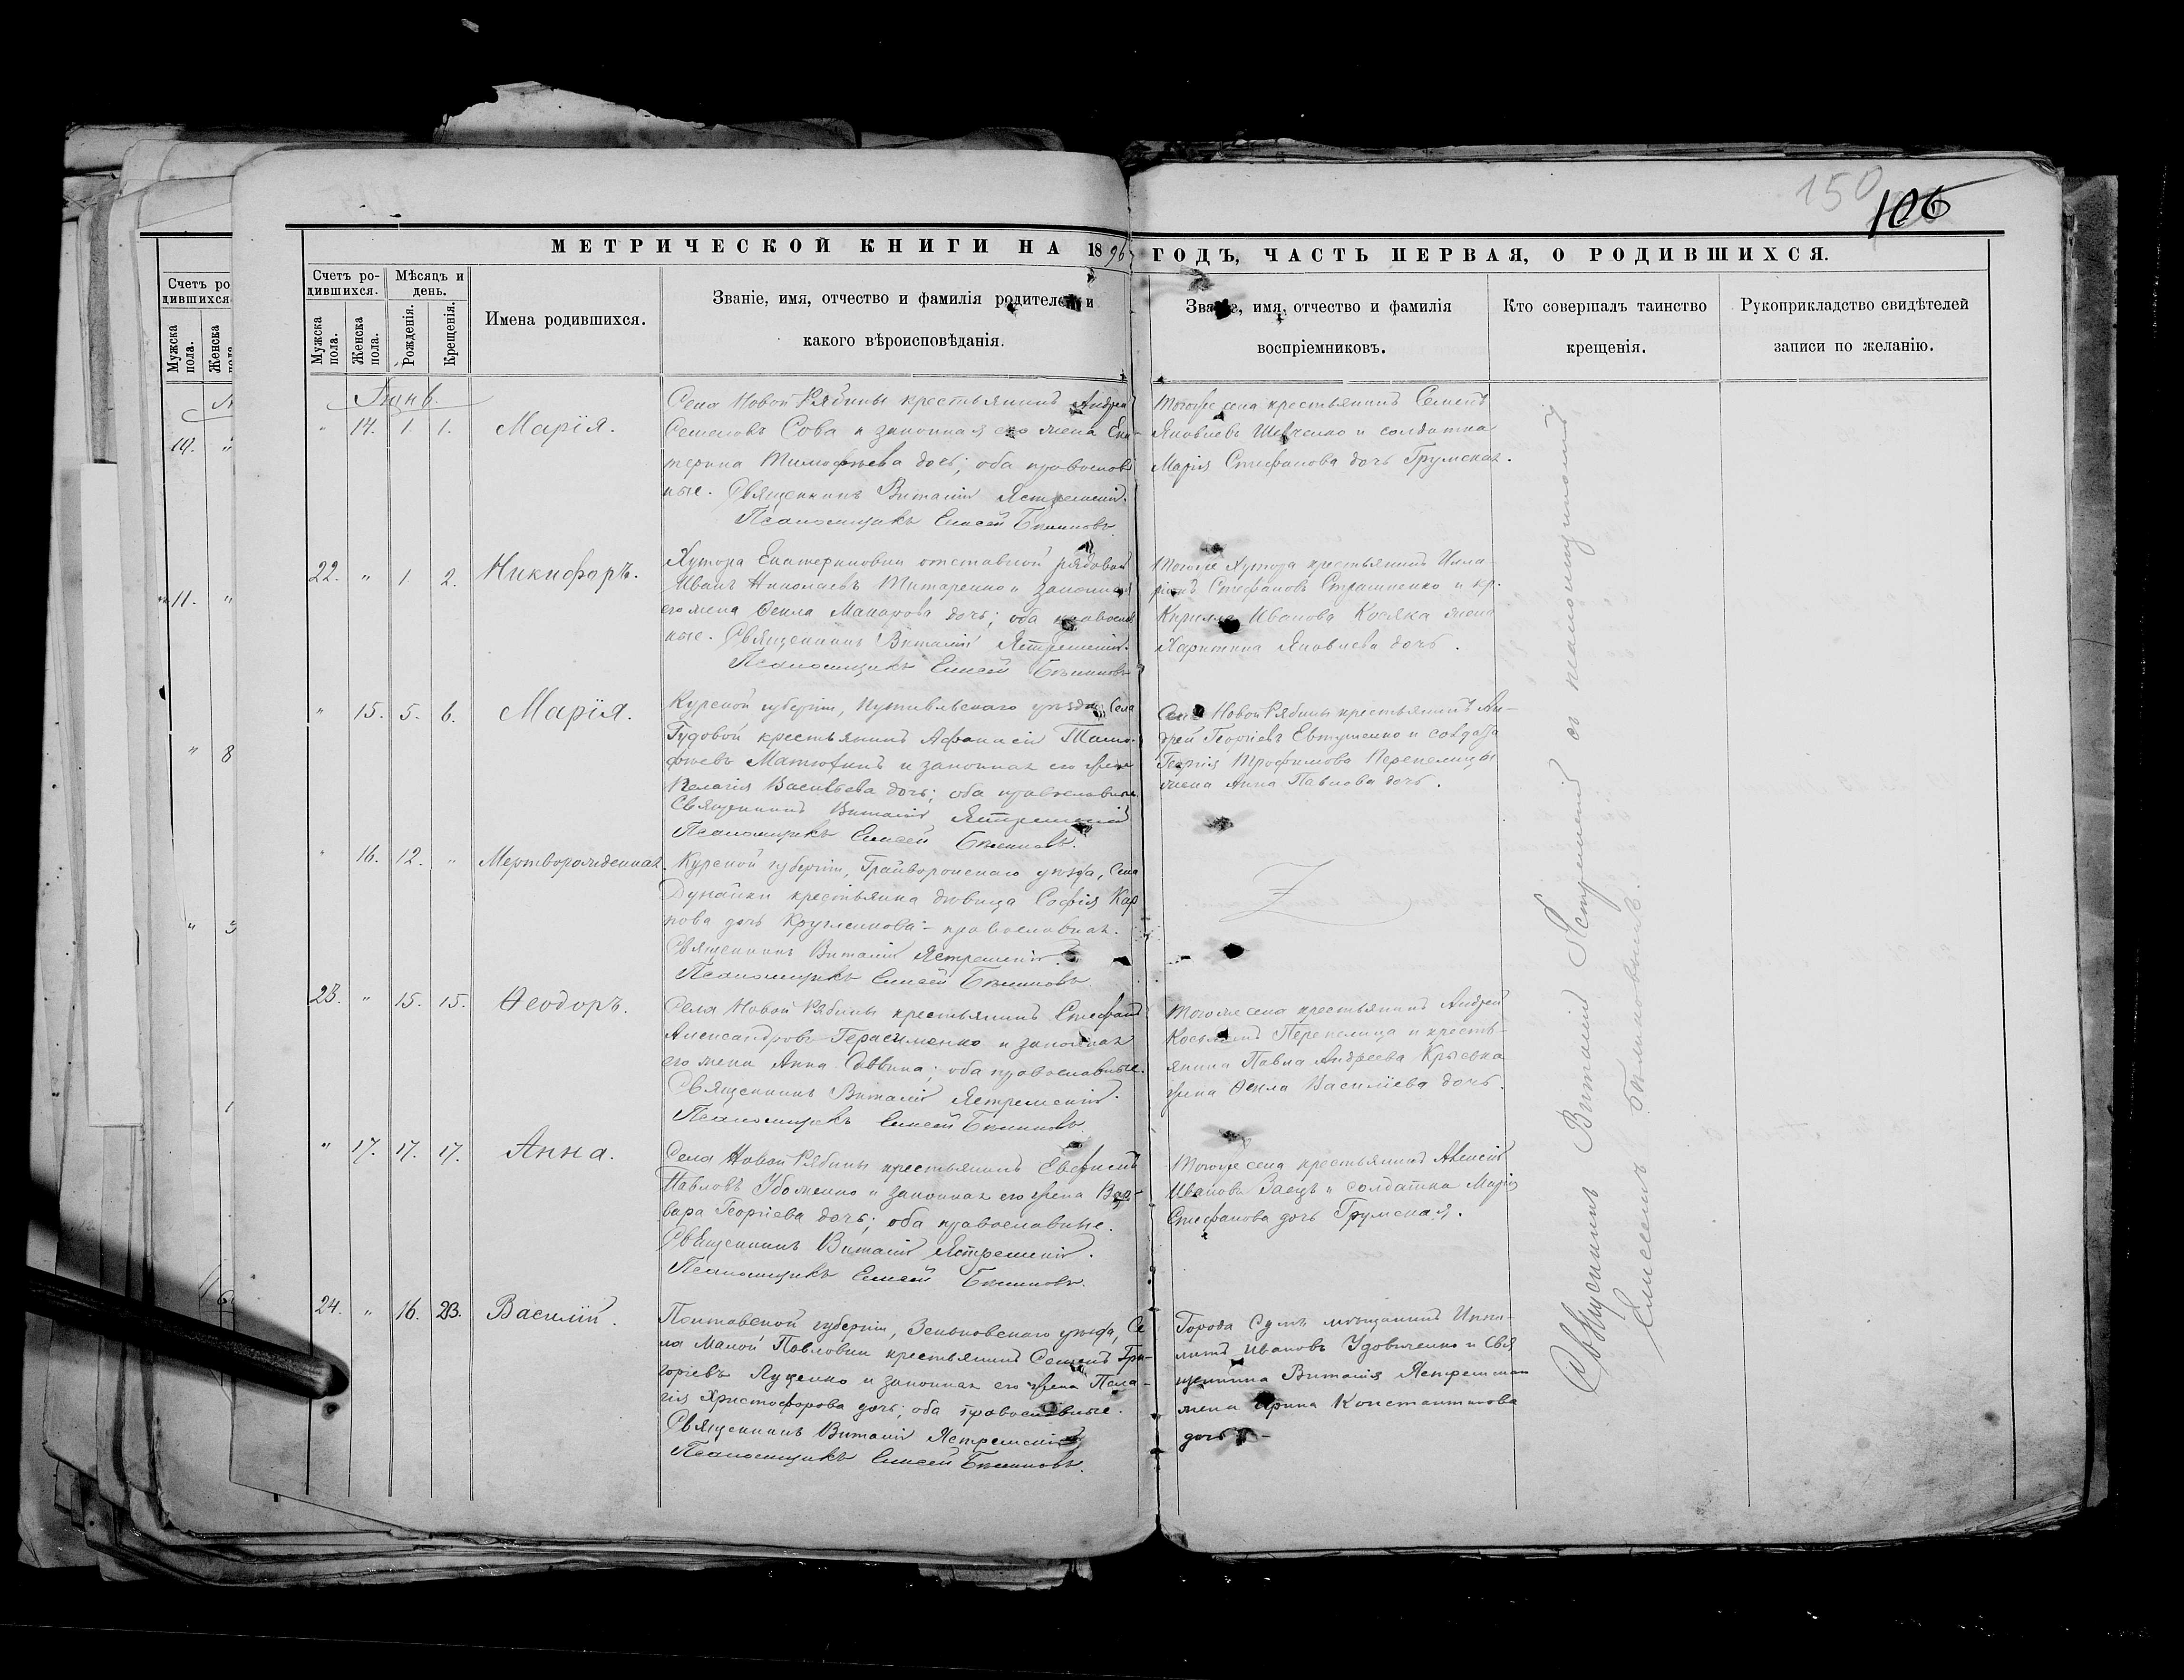 150
106
МЕТРИЧЕСКОЙ КНИГИ НА 1896 ГОДЪ, ЧАСТЬ ПЕРВАЯ, О РОДИВШИХСЯ.
Счетъ ро-
дившихся.
Мужска пола.
Женска пола.
Мѣсяцъ и
день.
Рожденія.
Крещенія.
Имена родившихся.
Званіе, имя, отчество и фамилія родителей и
какого вѣроисповѣданія.
Званіе, имя, отчество и фамилія
воспріемниковъ.
Кто совершалъ таинство
крещенія.
Рукоприкладство свидѣтелей
записи по желанію.
Счетъ ро
дившихся
Мужска пола.
Женска
10. "
11. "
" 8
Іюнь.
" 14. 1. 1. Марія.
Села Новой Рябины крестьянинъ Андрей
Семеновъ Сова и законная его жена Ека-
терина Тимофѣева дочь; оба православ
ные. Священникъ Виталій Ястремскій.
Псаломщикъ Елисей
Тогоже села крестьянинъ Семенъ
Яковлевъ Шевченко и солдатка
Марія Стефанова дочь Грумская.
22. " 1. 2. Никифоръ.
Хутора Екатериновки отставной рядовой
Иванъ Николаевъ Титаренко и законная
его жена Ѳекла Макарова дочь; оба православ
ные. Священникъ Виталій Ястремскій.
Псаломщикъ Елисей
Тогоже Хутора крестьянинъ Илла-
ріонъ Стефановъ Страшненко и кр.
Кирилла Иванова Косяка жена
Харитина Яковлева дочь.
" 15. 5. 6. Марія.
Курской губерніи, Путивльскаго уѣзда, Села
Гудовой крестьянинъ Афанасій Тимо-
фѣевъ Матюткинъ и законная его жена
Пелагія Васильева дочь; оба православные.
Священникъ Виталій Ястремскій
Псаломщикъ Елисей
Села Новой Рябины крестьянинъ Ан-
дрей Георгіевъ Евтушенко и солдата
Георгія Трофимова Перепелицы
жена Анна Павлова дочь.
" 16. 12. " Мертворожденная.
Курской губерніи, Грайворонскаго уѣзда, Села
Дунайки крестьянка дѣвица Софія Кар
пова дочь Кругликова - православная.
Священникъ Виталій Ястремскій.
Псаломщикъ Елисей
Z
23. " 15. 15. Ѳеодоръ.
Села Новой Рябины крестьянинъ Стефанъ
Александровъ Герасименко и законная
его жена Анна Саввина; оба православные.
Священникъ Виталій Ястремскій.
Псаломщикъ Елисей
Тогоже села крестьянинъ Андрей
Косьминъ Перепелица и кресть-
янина Павла Андреева
жена Ѳекла Василіева дочь.
" 17. 17. 17. Анна.
Села Новой Рябины крестьянинъ Евфимъ
Павловъ Убоженко и законная его жена Вар-
вара Георгіева дочь; оба православные.
Священникъ Виталій Ястремскій.
Псаломщикъ Елисей
Тогоже села крестьянинъ Алексѣй
Ивановъ Заецъ и солдатка Марія
Стефанова дочь Грумская.
24. " 16. 23. Василій.
Полтавской губерніи, Зеньковскаго уѣзда, Се
ла Малой Павловки крестьянинъ Семенъ Гри-
горіевъ Луценко и законная его жена Пела-
гія Христофорова дочь; оба православные.
Священникъ Виталій Ястремскій
Псаломщикъ Елисей
Города Сумъ мѣщанинъ Иппо-
литъ Ивановъ Удовиченко и Свя
щенника Виталія Ястремскаго
жена Ирина Константинова
дочь.
Священникъ Виталій Ястремскій съ псаломщикомъ
Елисеемъ